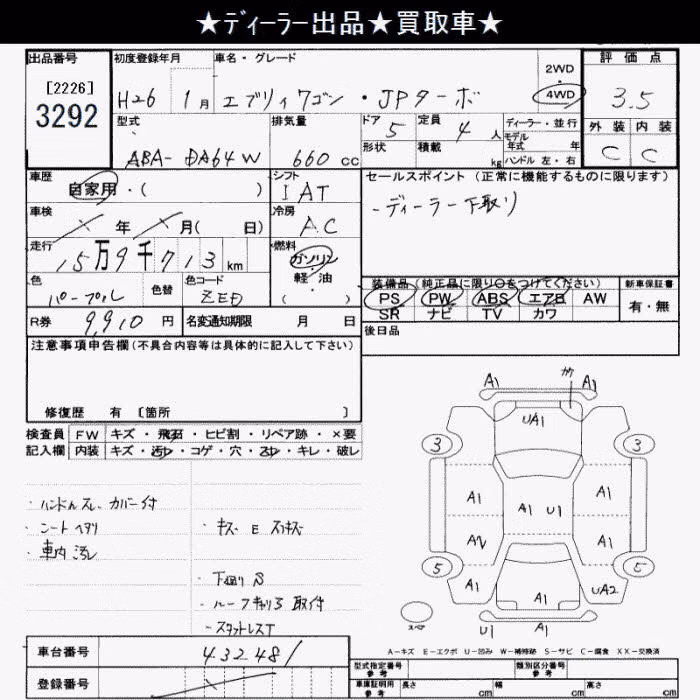 ★ディーラー出品★買取車★
出品番号
[2226]
3292
初度登録年月
H26 1月
車名・グレード
エブリィワゴン・JPターボ
2WD
4WD
評価点
3.5
型式
ABA-DA64W
排気量
660 cc
ドア 5
定員 4 人
ディーラー・並行
モデル年式 年
形状
積載 kg
ハンドル 左・右
外装 内装
C C
車歴
自家用・( )
シフト
IAT
セールスポイント (正常に機能するものに限ります)
-ディーラー下取り
車検
年 月( 日)
冷房
AC
走行
15万9千713km
燃料
ガソリン
軽・油
( )
色
パープル
色替
色コード
ZED
装備品 (純正品に限り○をつけてください)
PS PW ABS エアB AW
SR ナビ TV カワ
新車保証書
有・無
R券 9,910 円
名変通知期限 月 日
後日品
注意事項申告欄(不具合内容等は具体的に記入して下さい)
修復歴 有 [箇所 ]
検査員 FW キズ・飛石・ヒビ割・リペア跡・×要
記入欄 内装 キズ・汚れ・コゲ・穴・スレ・キレ・破レ
・ハンドルスレ、カバー付
・シートヘタリ
・車内汚レ
・キズ E スリキズ
・下廻りS
・ルーフキャリア取付
・スタットレスT
A1 A1
UA1
3 3
A1 A1 U1 A1
A2 A1
5 5
A1 A1 UA2
U1 A1
スペア
A-キズ E-エクボ U-凹み W-補修跡 S-サビ C-腐食 XX-交換済
車台番号 432481
登録番号
型式指定番号 参考
類別区分番号 参考
車庫証明用 参考
長さ cm
幅 cm
高さ cm